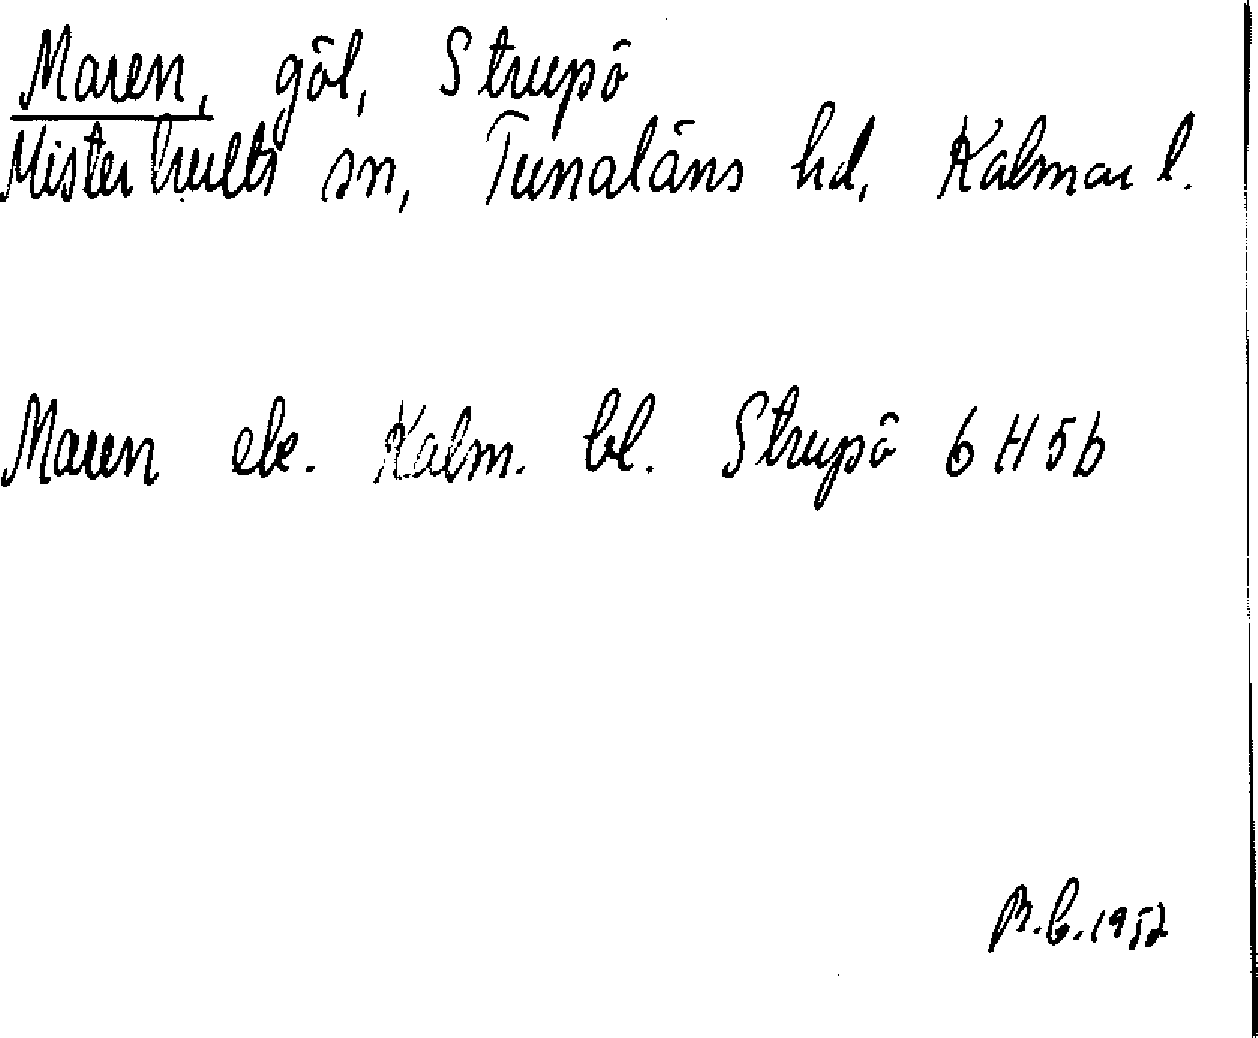 Maren, göl, Strupö
Misterhults sn, Tunaläns hd, Kalmar l.
Maren ek. Kalm. bl. Strupö 6 H 5 b
1952